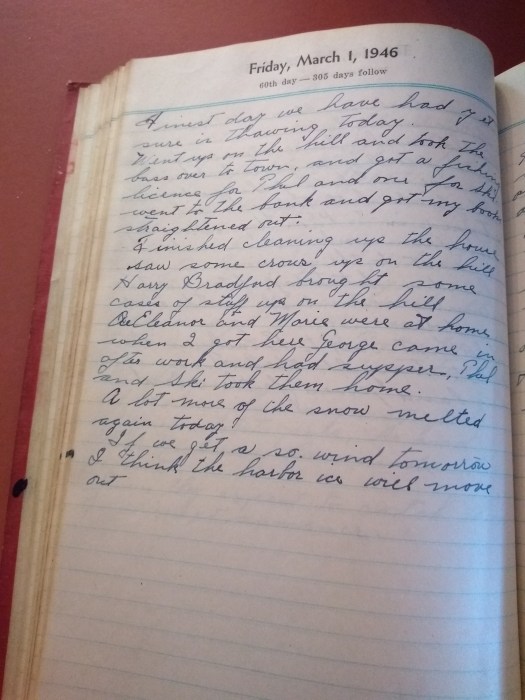 Friday, March 1, 1946
60th day — 305 days follow
Finest day we have had yet
sure is thawing today.
Went up on the hill and took the
bass over to town, and got a fishing
licence for Phil and one for Ski
went to the bank and got my book
straightened out.
Finished cleaning up the house
saw some crows up on the hill
Harry Bradford brought some
cases of stuff up on the hill
Eleanor and Marie were at home
when I got here George came in
after work and had supper, Phil
and Ski took them home.
A lot more of the snow melted
again today.
If we get a so. wind tomorrow
I think the harbor ice will move
out